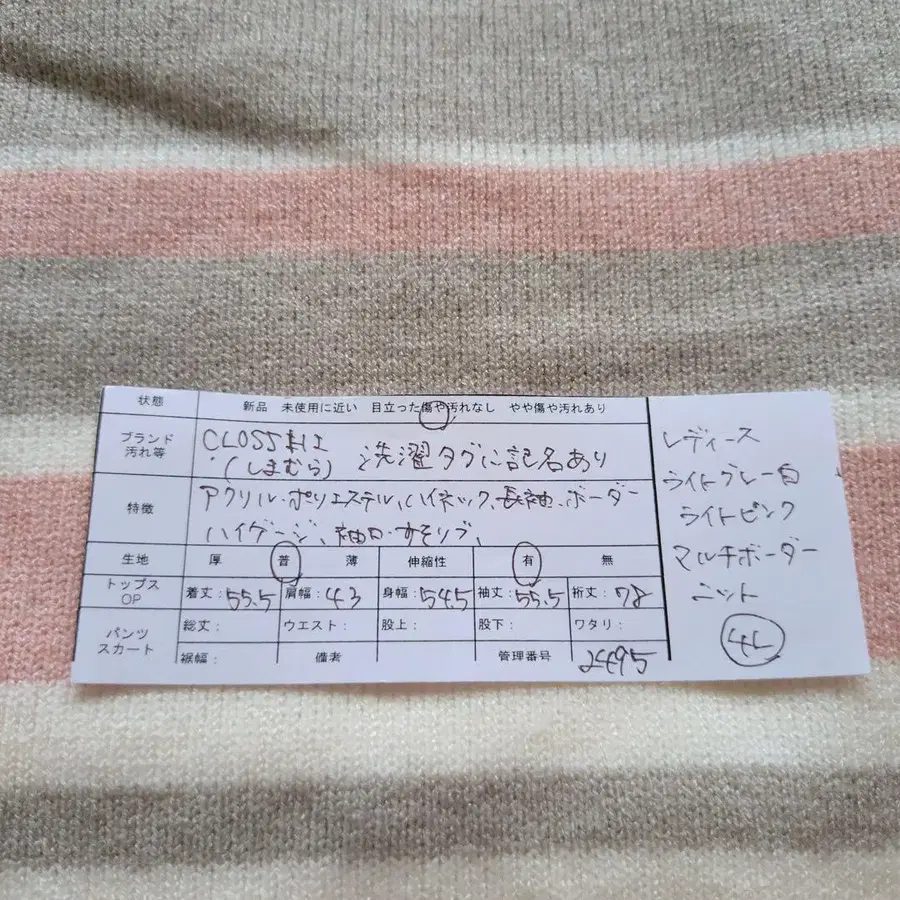 状態 新品 未使用に近い 目立った傷や汚れなし やや傷や汚れあり
ブランド CLOSSHI
汚れ等 (しまむら) 洗濯タグに記名あり
特徴 アクリル・ポリエステル、ハイネック、長袖、ボーダー
ハイゲージ、袖口・すそリブ、
生地 厚 普 薄 伸縮性 有 無
トップス OP 着丈:55.5 肩幅:43 身幅:54.5 袖丈:55.5 裄丈:78
パンツ スカート 総丈: ウエスト: 股上: 股下: ワタリ:
裾幅: 備考 管理番号 2495
レディース
ライトグレー白
ライトピンク
マルチボーダー
ニット
4L